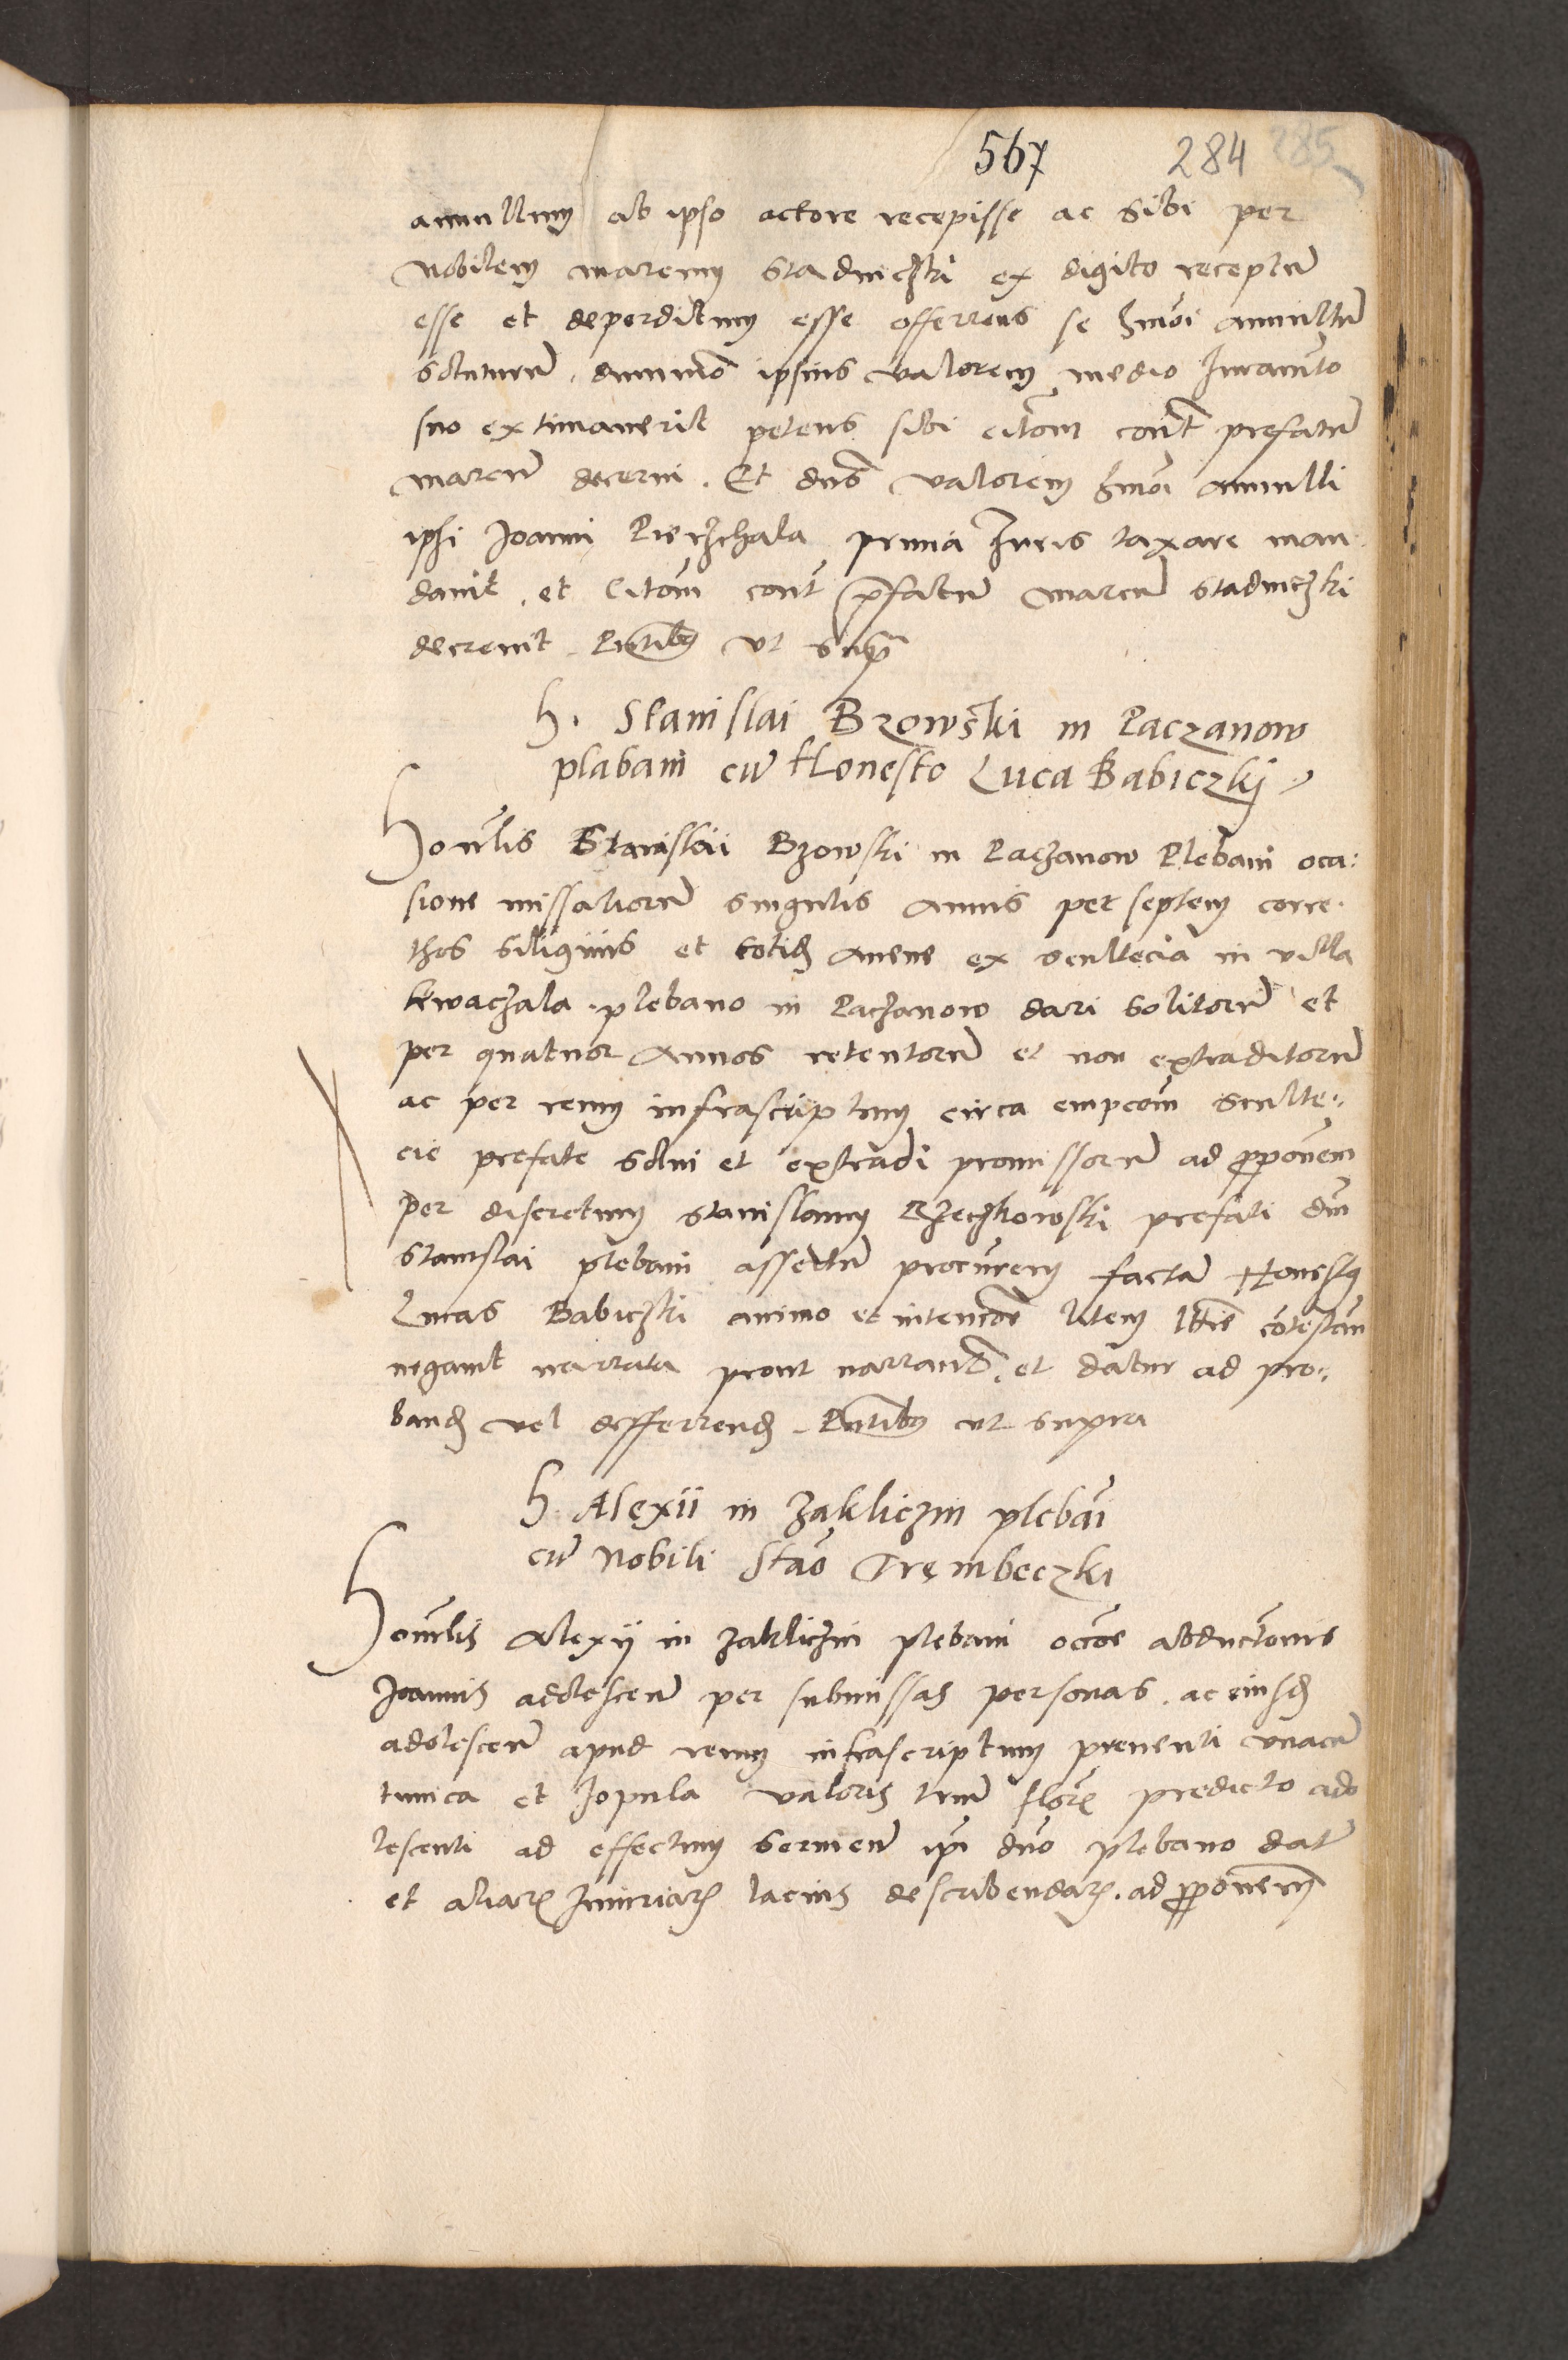 567 284 285
annullum ab ipso actore recepisse ac sibi per
Nobilem marcum Stadniczki ex digito receptū
esse et deperditum esse offerrens se hmōi annullū
soluturū, dummō ipsius valorem medio Iuramto
suo extimauerit petens sibi citōm cont prefatū
marcū decerni. Et dns valorem hmōi annulli
ipsi Joanni Pierzchala prima Iuris taxare man
dauit, et Citōm cont p̄fatū marcū Stadniczki
decreuit. Pntibus vt supra
H. Stanislai Bzowski in Paczanow
plābani cū Honesto Luca Babiczki
Honlis Stanislai Bzowski in Paczanow Plebani oca:
sione missaliorū singulis annis per septem core.
thos siliginis et totid auene ex scultecia in villa
kwaczala plebano in Paczanow dari solitorū et
per quatuor annos retentorū et non extraditorū
ac per reum infrascriptum circa empcōm sculte:
cie prefate solui et extradi promissorū ad ꝓponem
per discretum stanislaum Rzeczkowski prefati dni
stanislai plebani assertū procurem factā Honestus
Lucas Babiczki animo et intencōe litem ltis cōtestan
negauit narrata prout narrantr, et datur ad pro:
band vel defferrend. Pntibus vt supra
H. Alexii in Zakliczin plebāi
cū Nobili Stāo Trembeczki
Honlis Alexij in Zakliczin plebani occōe abductionis
Joannis adolescen per submissas personas, ac eiusd
adolescen apud reum infrascriptum preuenti vnacū
tunica et Jopula valoris trium flor predicto ado
lescenti ad effectum seruien ipi dno plebano dat
et aliar Iniuriar lacius describendar, ad ꝓponem